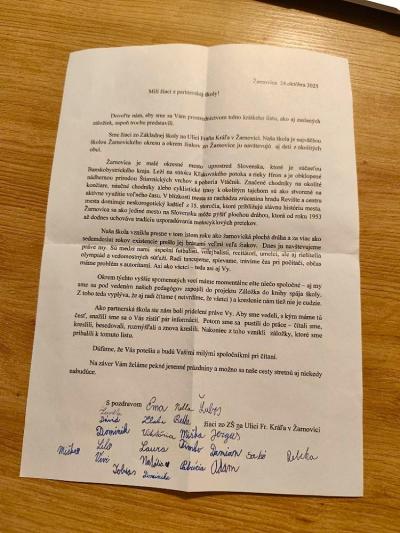 Žarnovica 24.októbra 2025
Milí žiaci z partnerskej školy!
Dovoľte nám, aby sme sa Vám prostredníctvom tohto krátkeho listu, ako aj zaslaných
záložiek, aspoň trochu predstavili.
Sme žiaci zo Základnej školy na Ulici Fraňa Kráľa v Žarnovici. Naša škola je najväčšou
školou Žarnovického okresu a okrem žiakov zo Žarnovice ju navštevujú aj deti z okolitých
obcí.
Žarnovica je malé okresné mesto uprostred Slovenska, ktoré je súčasťou
Banskobystrického kraja. Leží na sútoku Kľakovského potoka a rieky Hron a je obklopené
nádhernou prírodou Štiavnických vrchov a pohoria Vtáčnik. Značené chodníky na okolité
končiare, náučné chodníky alebo cyklistické trasy k okolitým tajchom sú ako stvorené na
aktívne využitie voľného času. V blízkosti mesta sa nachádza zrúcanina hradu Revište a centru
mesta dominuje neskorogotický kaštieľ z 15. storočia, ktoré približujú slávnu históriu mesta.
Žarnovica sa ako jediné mesto na Slovensku môže pýšiť plochou dráhou, ktorá od roku 1953
až dodnes uchováva tradíciu usporadúvania motocyklových pretekov.
Naša škola vznikla presne v tom istom roku ako žarnovická plochá dráha a za viac ako
sedemdesiat rokov existencie prešlo jej bránami veľmi veľa žiakov. Dnes ju navštevujeme
práve my. Sú medzi nami úspešní futbalisti, volejbalisti, recitátori, umelci, ale aj riešitelia
olympiád a vedomostných súťaží. Radi tancujeme, spievame, trávime čas pri počítači, občas
máme problém s autoritami. Ani ako všetci – teda asi aj Vy.
Okrem týchto vyššie spomenutých vecí máme momentálne ešte niečo spoločné – aj my
sme sa pod vedením našich pedagógov zapojili do projektu Záložka do knihy spája školy.
Z toho teda vyplýva, že aj radi čítame ( netvrdíme, že všetci ) a kreslenie nám tiež nie je cudzie.
Ako partnerská škola ste nám boli pridelení práve Vy. Aby sme vedeli, s kým máme tú
česť, snažili sme sa o Vás zistiť pár informácií. Potom sme sa pustili do práce – čítali sme,
kreslili, besedovali, rozmýšľali a znova kreslili. Nakoniec z toho vznikli záložky, ktoré sme
pribalili k tomuto listu.
Dúfame, že Vás potešia a budú Vašimi milými spoločníkmi pri čítaní.
Na záver Vám želáme pekné jesenné prázdniny a možno sa naše cesty stretnú aj niekedy
nabudúce.
S pozdravom Ema Nella Ľuboš
žiaci zo ZŠ na Ulici Fr. Kráľa v Žarnovici
Dávid Bella
Dominik Viktória Miška
Lilo Laura Damian Rebeka
Vivi Natália Patrícia Adam
Tobias Dominika